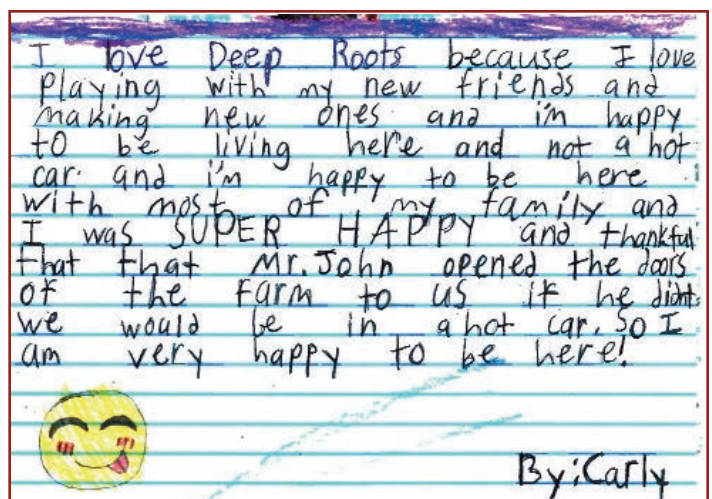 I love Deep Roots because I love
playing with my new friends and
making new ones and i'm happy
to be living here and not a hot
car. and i'm happy to be here
with most of my family and
I was SUPER HAPPY and thankful
that that Mr. John opened the doors
of the farm to us if he didnt
we would be in a hot car. So I
am very happy to be here!
By: Carly